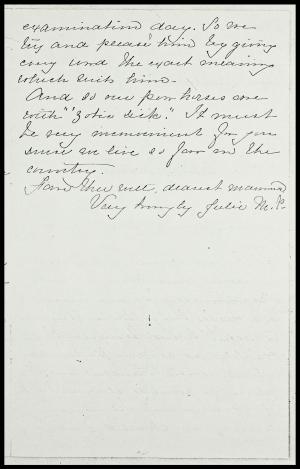 examination day. So we
try and please him by giving
every word the exact meaning
which suits him.
And so our poor horses are
with "Zotic sick." It must
be very monument for you
since we live so far in the
country.
Fare thee well, dearest mamma
Very lovingly Julie M. P.